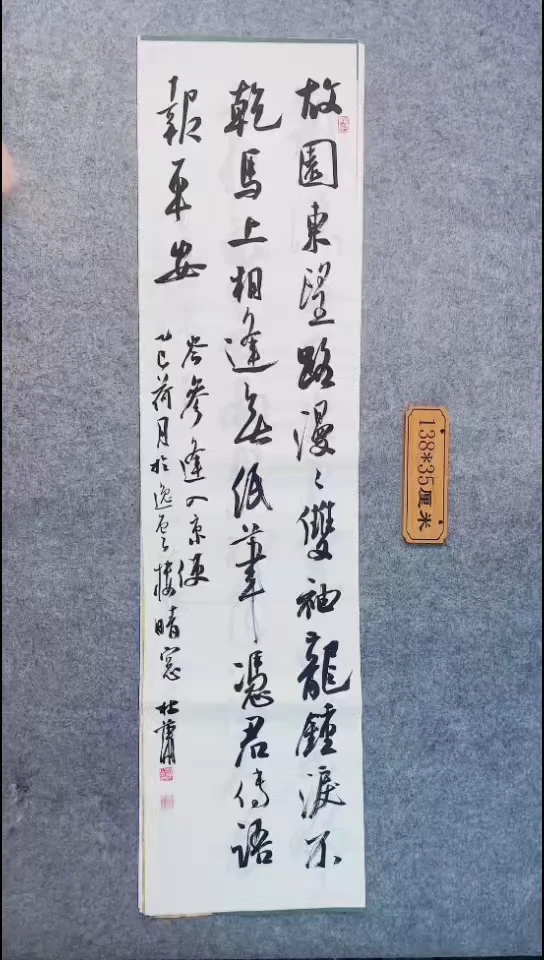 故園東望路漫〻雙袖龍鍾淚不
乾馬上相逢無紙筆憑君傳語
報平安
岑參逢入京使
乙巳荷月於逸雲樓晴窗 杜肅
138*35厘米